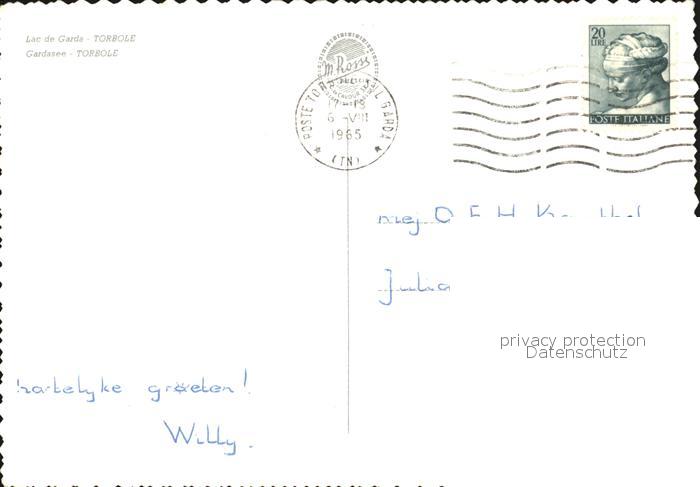 Lac de Garda - TORBOLE
Gardasee - TORBOLE
20
LIRE
POSTE ITALIANE
M. Rossi
POSTE GARDA
17-18
6-VIII
1965
(TN)
mej
privacy protection
Datenschutz
hartelyke groeten!
Willy.